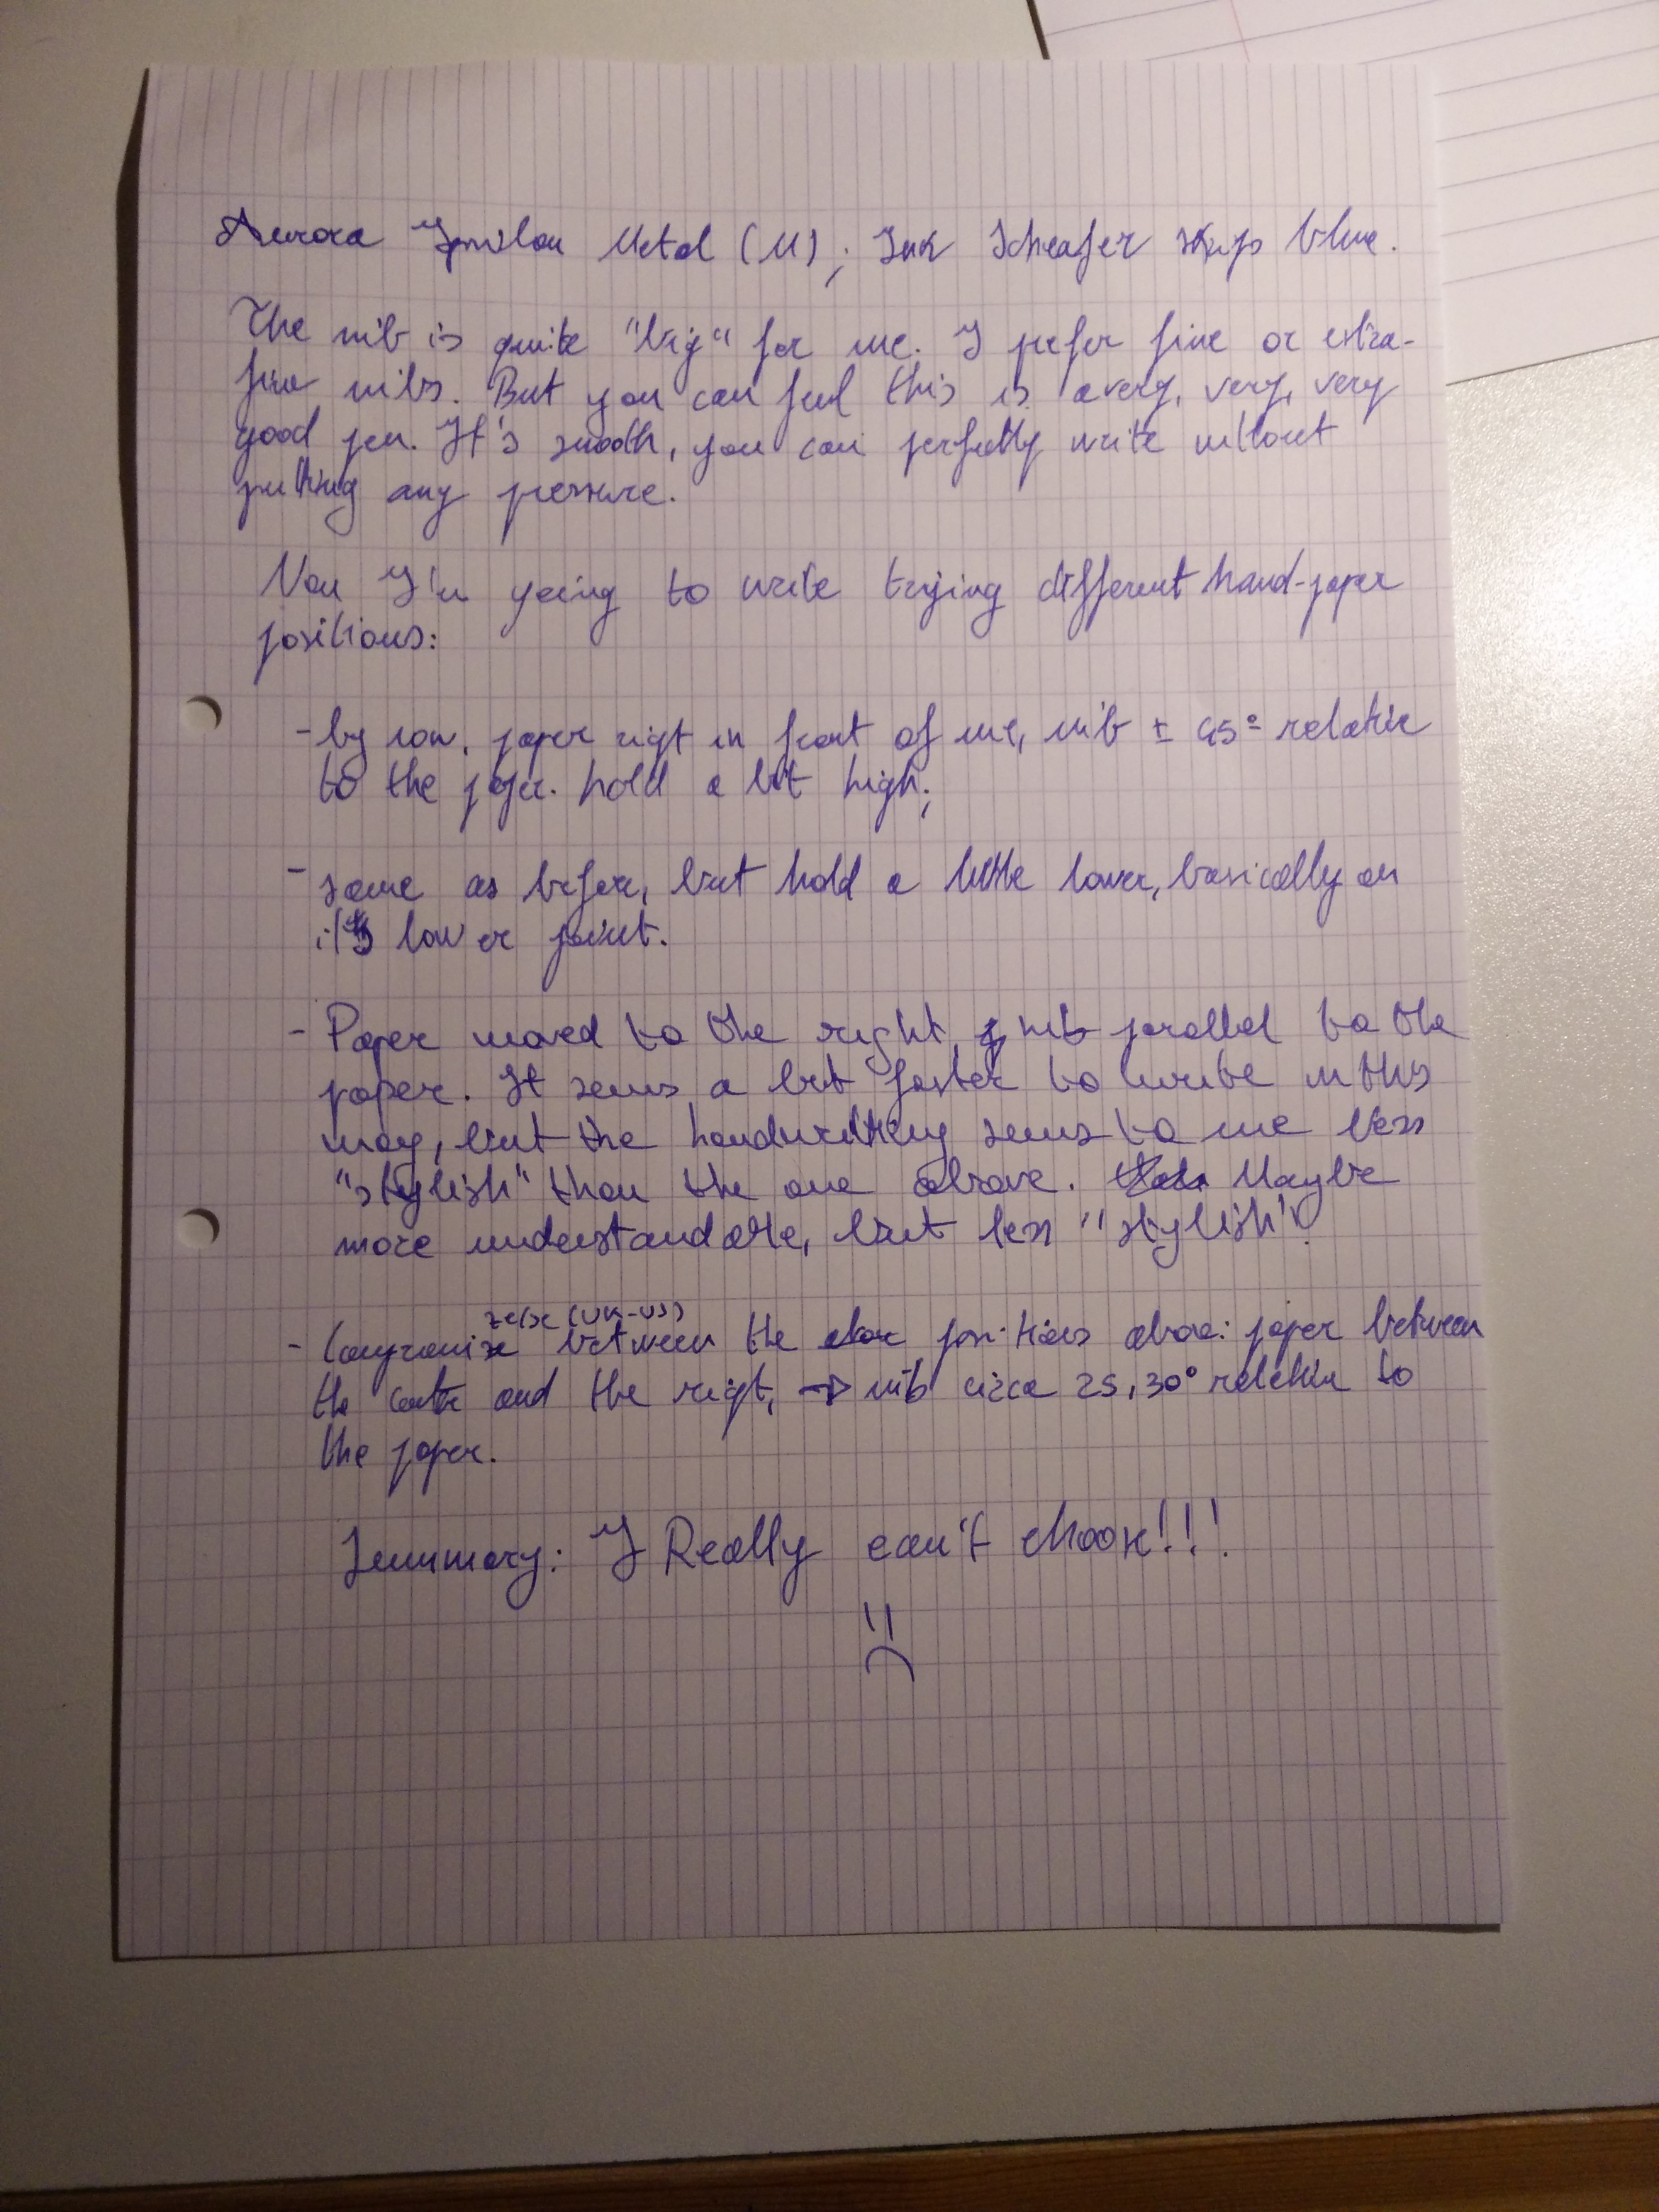 Aurora Ypsilon Metal (M); Ink Scheafer Skrip blue.
The nib is quite "big" for me. I prefer fine or extra-
fine nibs. But you can feel this is a very, very, very
good pen. It's smooth, you can perfectly write without
putting any pressure.
Now I'm going to write trying different hand-paper
positions:
- by now, paper rigt in front of me, nib ± 45° relative
to the paper. hold a bit high;
- same as before, but hold a little lower, basically on
it's lower point.
- Paper moved to the right, nib parallel to the
paper. It seems a bit faster to write in this
way, but the handwriting seems to me less
"stylish" than the one above. Maybe
more understandable, but less "stylish".
ze/se (UK-US)
- Compromise between the positions above: paper between
the cente and the rigt, → nib circa 25, 30° relative to
the paper.
Summary: I Really can't choose!!!
:(